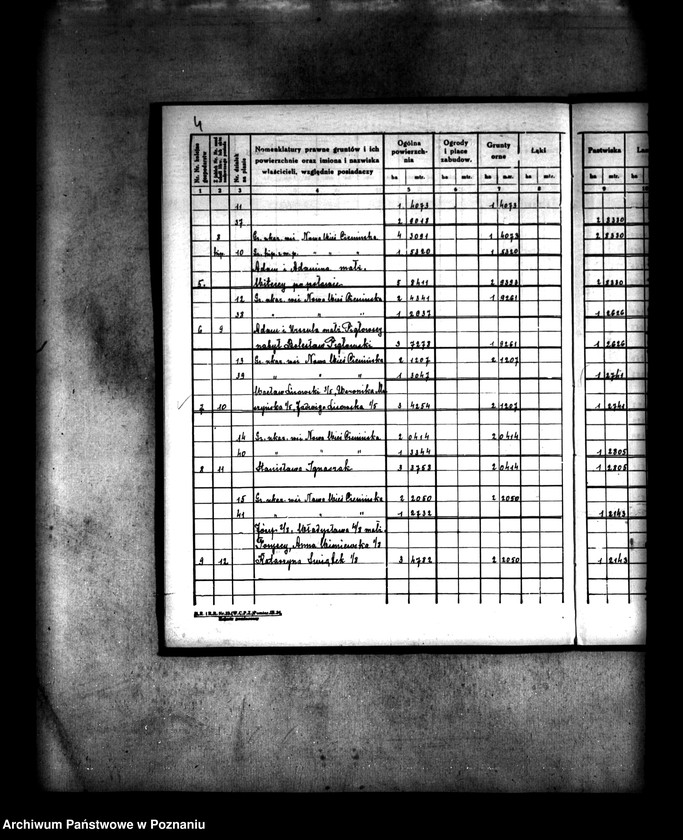 4
Nr. Nr. kolejne gospodarstw
Nr. działek na planie
Nomenklatury prawne gruntów i ich
powierzchnie oraz imiona i nazwiska
właścicieli, względnie posiadaczy
Ogólna powierzch-nia
Ogrody i place zabudow.
Grunty orne
Łąki
Pastwiska
ha mtr. ha mtr. ha mtr. ha mtr. ha mtr.
1 2 3 4 5 6 7 8 9 10
11 1 4073 1 4073
37 2 9018 2 8330
8 Gr. ukaz. wsi Nowa Wieś 4 3091 1 4073 2 8330
hip. 10 Gr. hip. " " " 1 5320 1 5320
Adam i Adamina małż.
5. po połowie 5 8411 2 9393 2 8330
12 Gr. ukaz. wsi Nowa Wieś 2 4341 1 9261
38 " " " 1 2937 1 2626
6 9 Adam i Urszula małż. Pigłowscy
nabył Bolesław Pigłowski 3 7278 1 9261 1 2626
13 Gr. ukaz. wsi Nowa Wieś 2 1207 2 1207
39 " " " 1 3047 1 2741
Wacław Lisowski 3/5, Weronika
7 10 1/5, Jadwiga Lisowska 1/5 3 4254 2 1207 1 2741
14 Gr. ukaz. wsi Nowa Wieś 2 0414 2 0414
40 " " " 1 3344 1 2805
8 11 Stanisława Ignaczak 3 3758 2 0414 1 2805
15 Gr. ukaz. wsi Nowa Wieś 2 2050 2 2050
41 " " " 1 2732 1 2143
Józef 2/8, Władysława 4/8 małż.
Anna 1/8
9 12 Katarzyna Świątek 1/8 3 4782 2 2050 1 2143
Archiwum Państwowe w Poznaniu